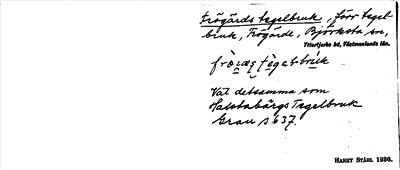 Frögårds tegelbruk, förr tegel-
bruk, Frögärde, Björksta sn,
Yttertjurbo hd, Västmanlands län.
Vat detsamma som
Halstabärgs Tegelbruk
Grau s 637.
HARRY STÅHL 1936.